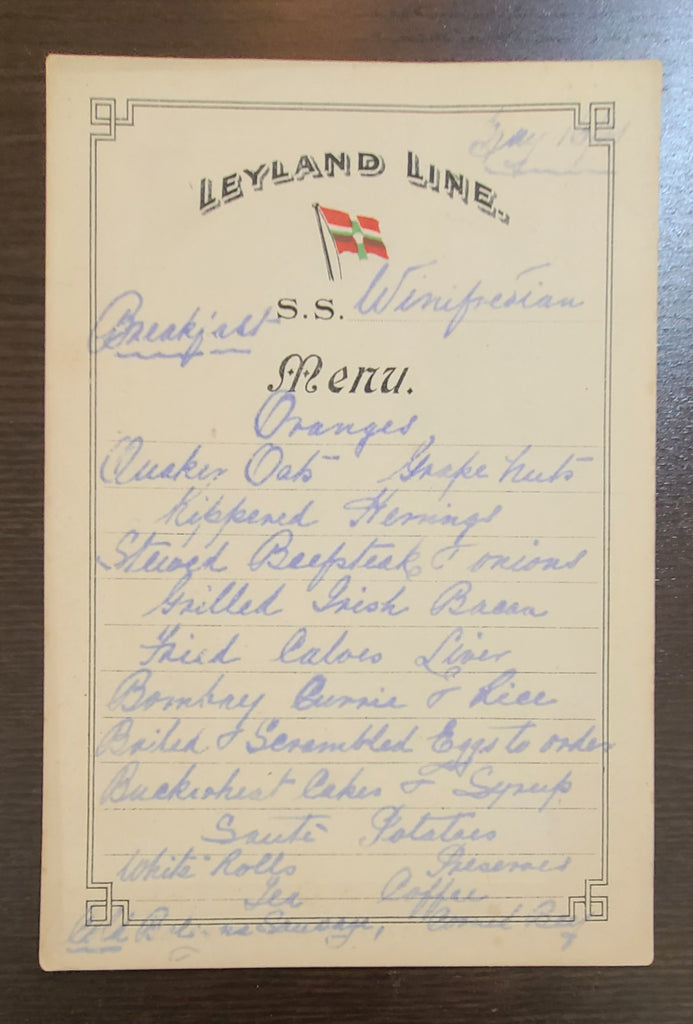 LEYLAND LINE.
S.S. Winifredian
Breakfast
Menu.
Oranges
Quaker Oats Grape Nuts
Kippered Herrings
Stewed Beefsteak & onions
Grilled Irish Bacon
Fried Calves Liver
Bombay Currie & Rice
Boiled & Scrambled Eggs to order
Buckwheat Cakes & Syrup
Sauté Potatoes
White Rolls Preserves
Tea Coffee
Sausage, Corned Beef